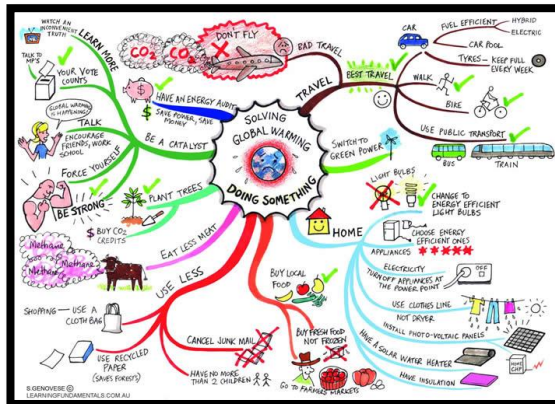 SOLVING
GLOBAL WARMING
DOING SOMETHING
WATCH AN
INCONVENIENT
TRUTH
LEARN MORE
TALK TO
MP'S
YOUR VOTE
COUNTS
GLOBAL WARMING
IS HAPPENING!
TALK
ENCOURAGE
FRIENDS, WORK
SCHOOL
FORCE YOURSELF
BE STRONG
BE A CATALYST
HAVE AN ENERGY AUDIT
$ SAVE POWER, SAVE
MONEY
PLANT TREES
$ BUY CO2
CREDITS
EAT LESS MEAT
Methane
Methane
Methane
USE LESS
SHOPPING — USE A
CLOTH BAG
USE RECYCLED
PAPER
(SAVES FORESTS)
CANCEL JUNK MAIL
HAVE NO MORE
THAN 2 CHILDREN
BUY LOCAL
FOOD
BUY FRESH FOOD
NOT FROZEN
GO TO FARMERS MARKETS
CO2
CO2
DON'T FLY
BAD TRAVEL
TRAVEL
BEST TRAVEL
CAR
FUEL EFFICIENT
HYBRID
ELECTRIC
CAR POOL
TYRES - KEEP FULL
EVERY WEEK
WALK
BIKE
USE PUBLIC TRANSPORT
BUS
TRAIN
SWITCH TO
GREEN POWER
HOME
LIGHT BULBS
CHANGE TO
ENERGY EFFICIENT
LIGHT BULBS
APPLIANCES
CHOOSE ENERGY
EFFICIENT ONES
ELECTRICITY
TURN OFF APPLIANCES AT
THE POWER POINT
OFF
USE CLOTHES LINE
NOT DRYER
INSTALL PHOTO-VOLTAIC PANELS
HAVE A SOLAR WATER HEATER
CHP
HAVE INSULATION
S.GENOVESE ©
LEARNINGFUNDAMENTALS.COM.AU